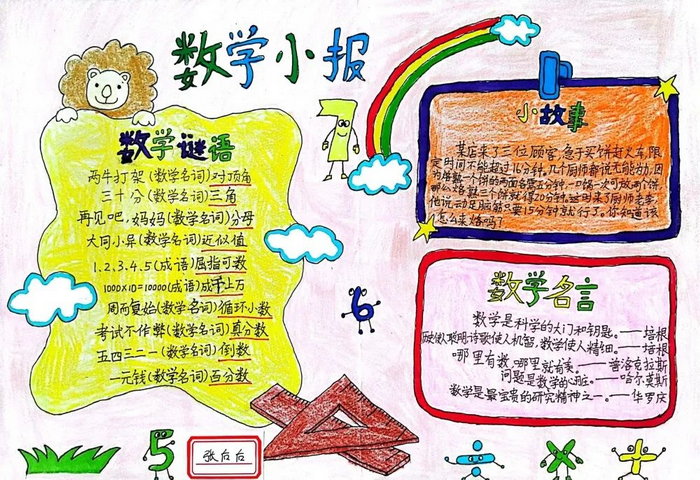 数学小报
数学谜语
两牛打架(数学名词)对顶角
三十分(数学名词)三角
再见吧,妈妈(数学名词)分母
大同小异(数学名词)近似值
1.2.3.4.5(成语)屈指可数
1000X10=10000(成语)成千上万
周而复始(数学名词)循环小数
考试不作弊(数学名词)真分数
五四三二一(数学名词)倒数
一元钱(数学名词)百分数
7
小故事
某店来了三位顾客,急于买饼赶火车,限
定时间不能超过16分钟,几个厨师都说无能为力,因
为要烙熟一个饼的两面各要五分钟,一口锅一次可放两个饼
那么烙熟三个饼就得20分钟,这时来了厨师老李,
他说动足脑筋只要15分钟就行了,你知道该
怎么来烙吗?
数学名言
数学是科学的大门和钥匙。——培根
使人聪明,诗歌使人机智,数学使人精细。——培根
哪里有数,哪里就有美。——普洛克拉斯
问题是数学的心脏。——哈尔莫斯
数学是最宝贵的研究精神之一。——华罗庚
6
5
张后后
÷
×
+